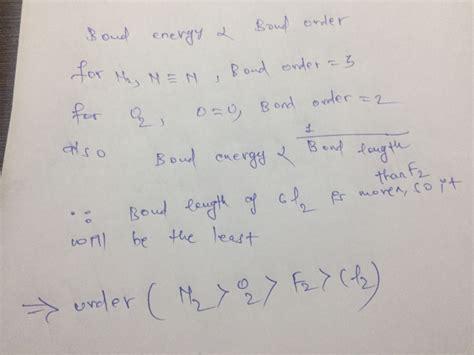 Bond energy α Bond order
for N2, N≡N, Bond order = 3
for O2, O=O, Bond order = 2
Also Bond energy α 1/Bond length
∵ Bond length of Cl2 is more than F2, so it
will be the least
⇒ order (N2 > O2 > F2 > Cl2)